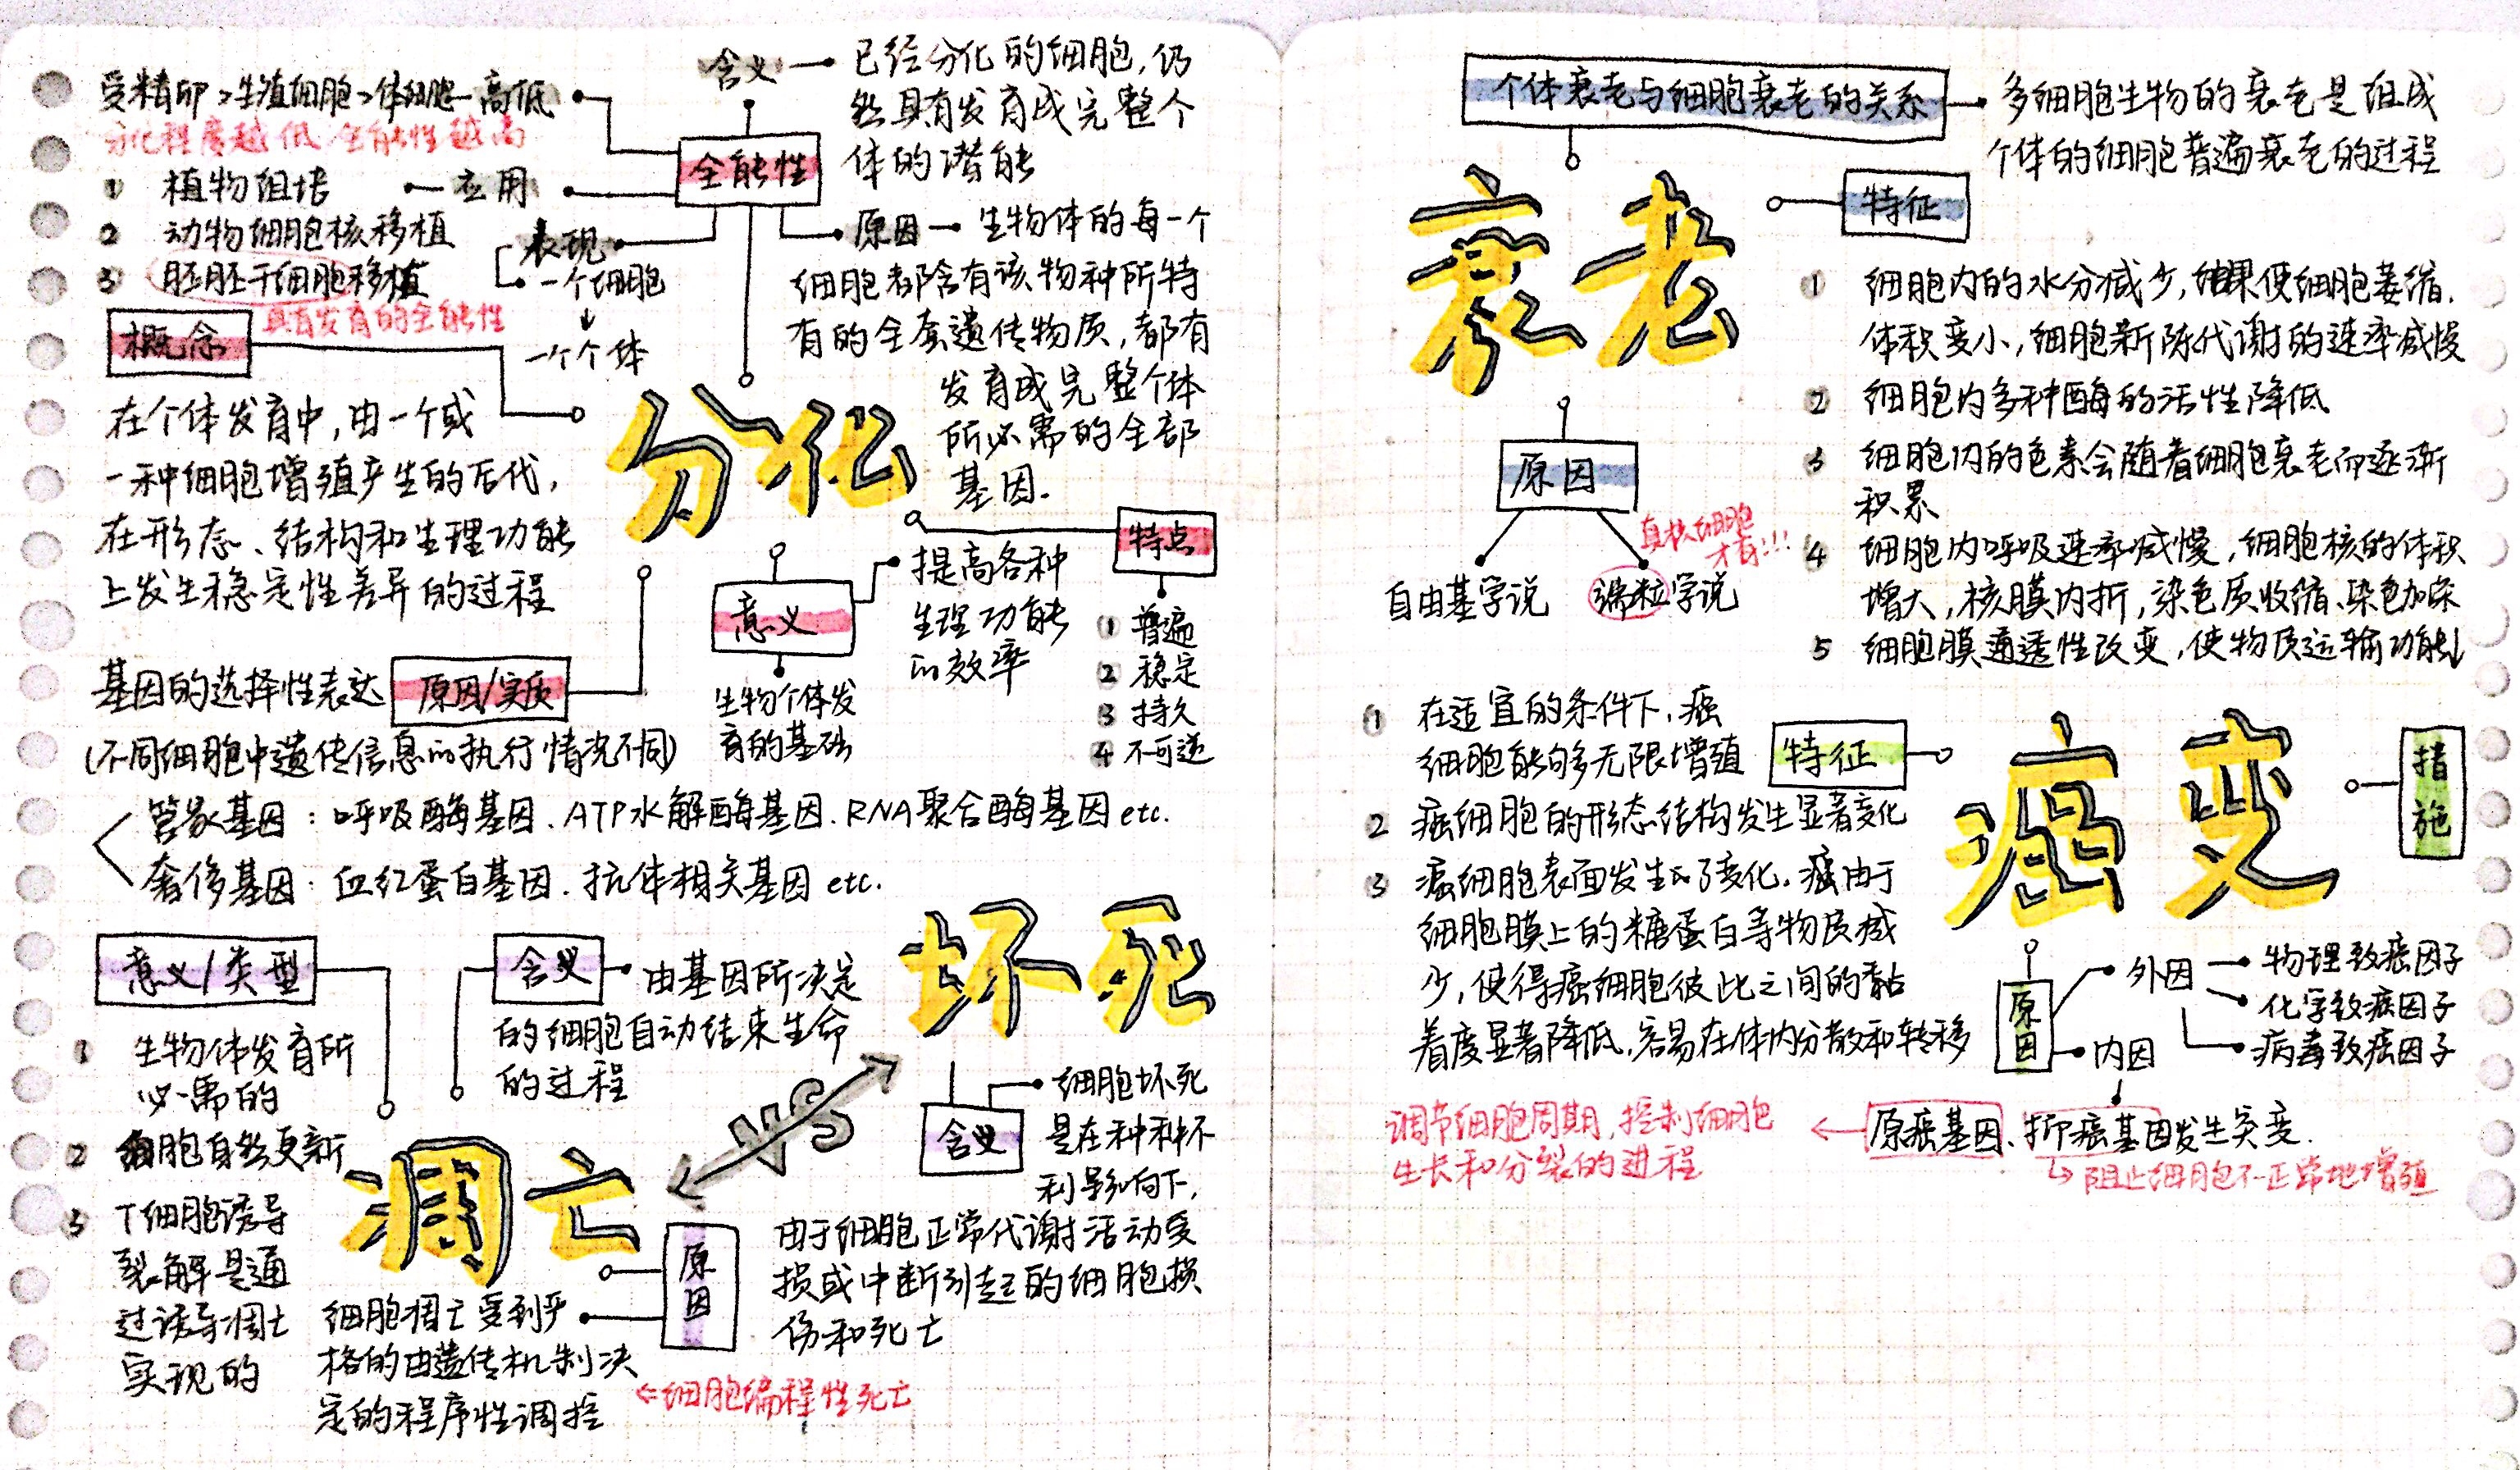 受精卵>生殖细胞>体细胞 高低
分化程度越低 全能性越高
含义
已经分化的细胞,仍
然具有发育成完整个
体的潜能
全能性
1 植物组培
应用
2 动物细胞核移植
3 胚胚干细胞移植
具有发育的全能性
表现
一个细胞
一个个体
原因
生物体的每一个
细胞都含有该物种所特
有的全套遗传物质,都有
发育成完整个体
所必需的全部
基因.
概念
在个体发育中,由一个或
一种细胞增殖产生的后代,
在形态、结构和生理功能
上发生稳定性差异的过程
分化
特点
1 普遍
2 稳定
3 持久
4 不可逆
意义
提高各种
生理功能
的效率
生物个体发
育的基础
基因的选择性表达
原因/实质
(不同细胞中遗传信息的执行情况不同)
管家基因:呼吸酶基因、ATP水解酶基因、RNA聚合酶基因etc.
奢侈基因:血红蛋白基因、抗体相关基因etc.
意义/类型
1 生物体发育所
必需的
2 细胞自然更新
3 T细胞诱导
裂解是通
过诱导凋亡
实现的
含义
由基因所决定
的细胞自动结束生命
的过程
坏死
VS
凋亡
含义
细胞坏死
是在种种不
利影响下,
由于细胞正常代谢活动受
损或中断引起的细胞损
伤和死亡
原因
细胞凋亡受到严
格的由遗传机制决
定的程序性调控
⇐细胞编程性死亡
个体衰老与细胞衰老的关系
多细胞生物的衰老是组成
个体的细胞普遍衰老的过程
衰老
特征
1 细胞内的水分减少,结果使细胞萎缩,
体积变小,细胞新陈代谢的速率减慢
2 细胞内多种酶的活性降低
3 细胞内的色素会随着细胞衰老而逐渐
积累
4 细胞内呼吸速率减慢,细胞核的体积
增大,核膜内折,染色质收缩、染色加深
5 细胞膜通透性改变,使物质运输功能↓
原因
自由基学说
端粒学说
真核细胞
才有!!!
癌变
特征
1 在适宜的条件下,癌
细胞能够无限增殖
2 癌细胞的形态结构发生显著变化
3 癌细胞表面发生的了变化.癌由于
细胞膜上的糖蛋白等物质减
少,使得癌细胞彼此之间的黏
着度显著降低,容易在体内分散和转移
措施
原因
外因
物理致癌因子
化学致癌因子
病毒致癌因子
内因
原癌基因、抑癌基因发生突变.
调节细胞周期,控制细胞
生长和分裂的进程
阻止细胞不正常地增殖